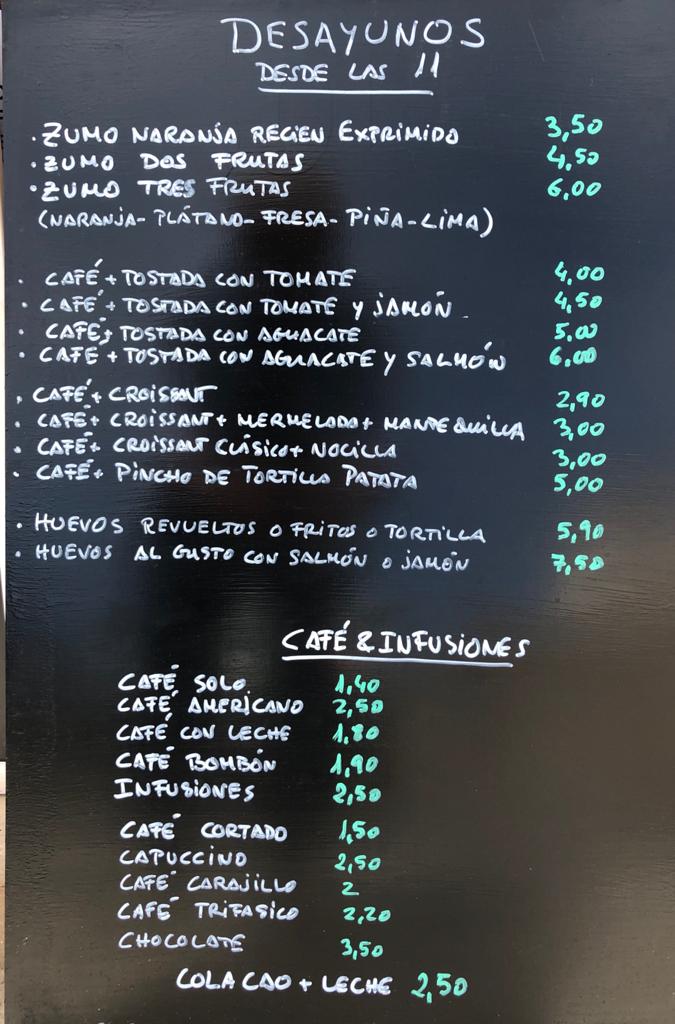 DESAYUNOS
DESDE LAS 11
. ZUMO NARANJA RECIEN EXPRIMIDO 3,50
. ZUMO DOS FRUTAS 4,50
. ZUMO TRES FRUTAS 6,00
(NARANJA- PLÁTANO- FRESA- PIÑA-LIMA)
. CAFÉ + TOSTADA CON TOMATE 4,00
. CAFÉ + TOSTADA CON TOMATE Y JAMÓN . 4,50
. CAFÉ + TOSTADA CON AGUACATE 5,00
. CAFÉ + TOSTADA CON AGUACATE Y SALMÓN 6,00
. CAFÉ + CROISSANT 2,90
. CAFÉ + CROISSANT + MERMELADA + MANTEQUILLA 3,00
. CAFÉ + CROISSANT CLÁSICO + NOCILLA 3,00
. CAFÉ + PINCHO DE TORTILLA PATATA 5,00
. HUEVOS REVUELTOS O FRITOS O TORTILLA 5,90
. HUEVOS AL GUSTO CON SALMÓN O JAMÓN 7,50
CAFÉ & INFUSIONES
CAFÉ SOLO 1,40
CAFÉ AMERICANO 2,50
CAFÉ CON LECHE 1,80
CAFÉ BOMBÓN 1,90
INFUSIONES 2,50
CAFÉ CORTADO 1,50
CAPUCCINO 2,50
CAFÉ CARAJILLO 2
CAFÉ TRIFASICO 2,20
CHOCOLATE 3,50
COLA CAO + LECHE 2,50